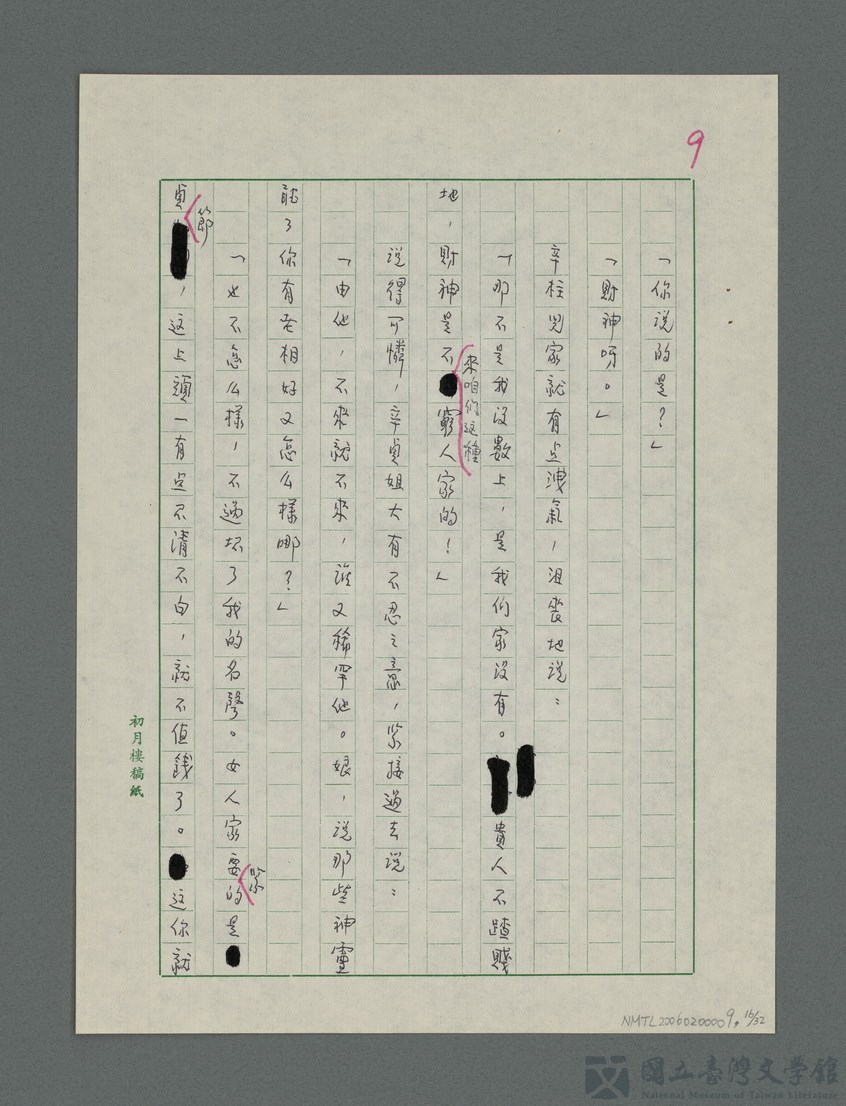 9
「你说的是？」
「財神呀。」
辛柱兒家就有点洩氣，沮喪地说：
「那不是我没數上，是我们家没有。貴人不蹅賤
地，財神是不來咱们这種窮人家的！」
说得可憐，辛貞姐大有不忍之意，紧接過去说：
「由他，不來就不來，誰又稀罕他。娘，说那些神靈
能了你有老相好又怎么樣哪？」
「也不怎么樣，不過坏了我的名聲。女人家要紧的是
貞節，这上頭一有点不清不白，就不值錢了。这你就
初月樓稿紙
NMTL20060200009. 16/32
國立臺灣文學館
National Museum of Taiwan Literature